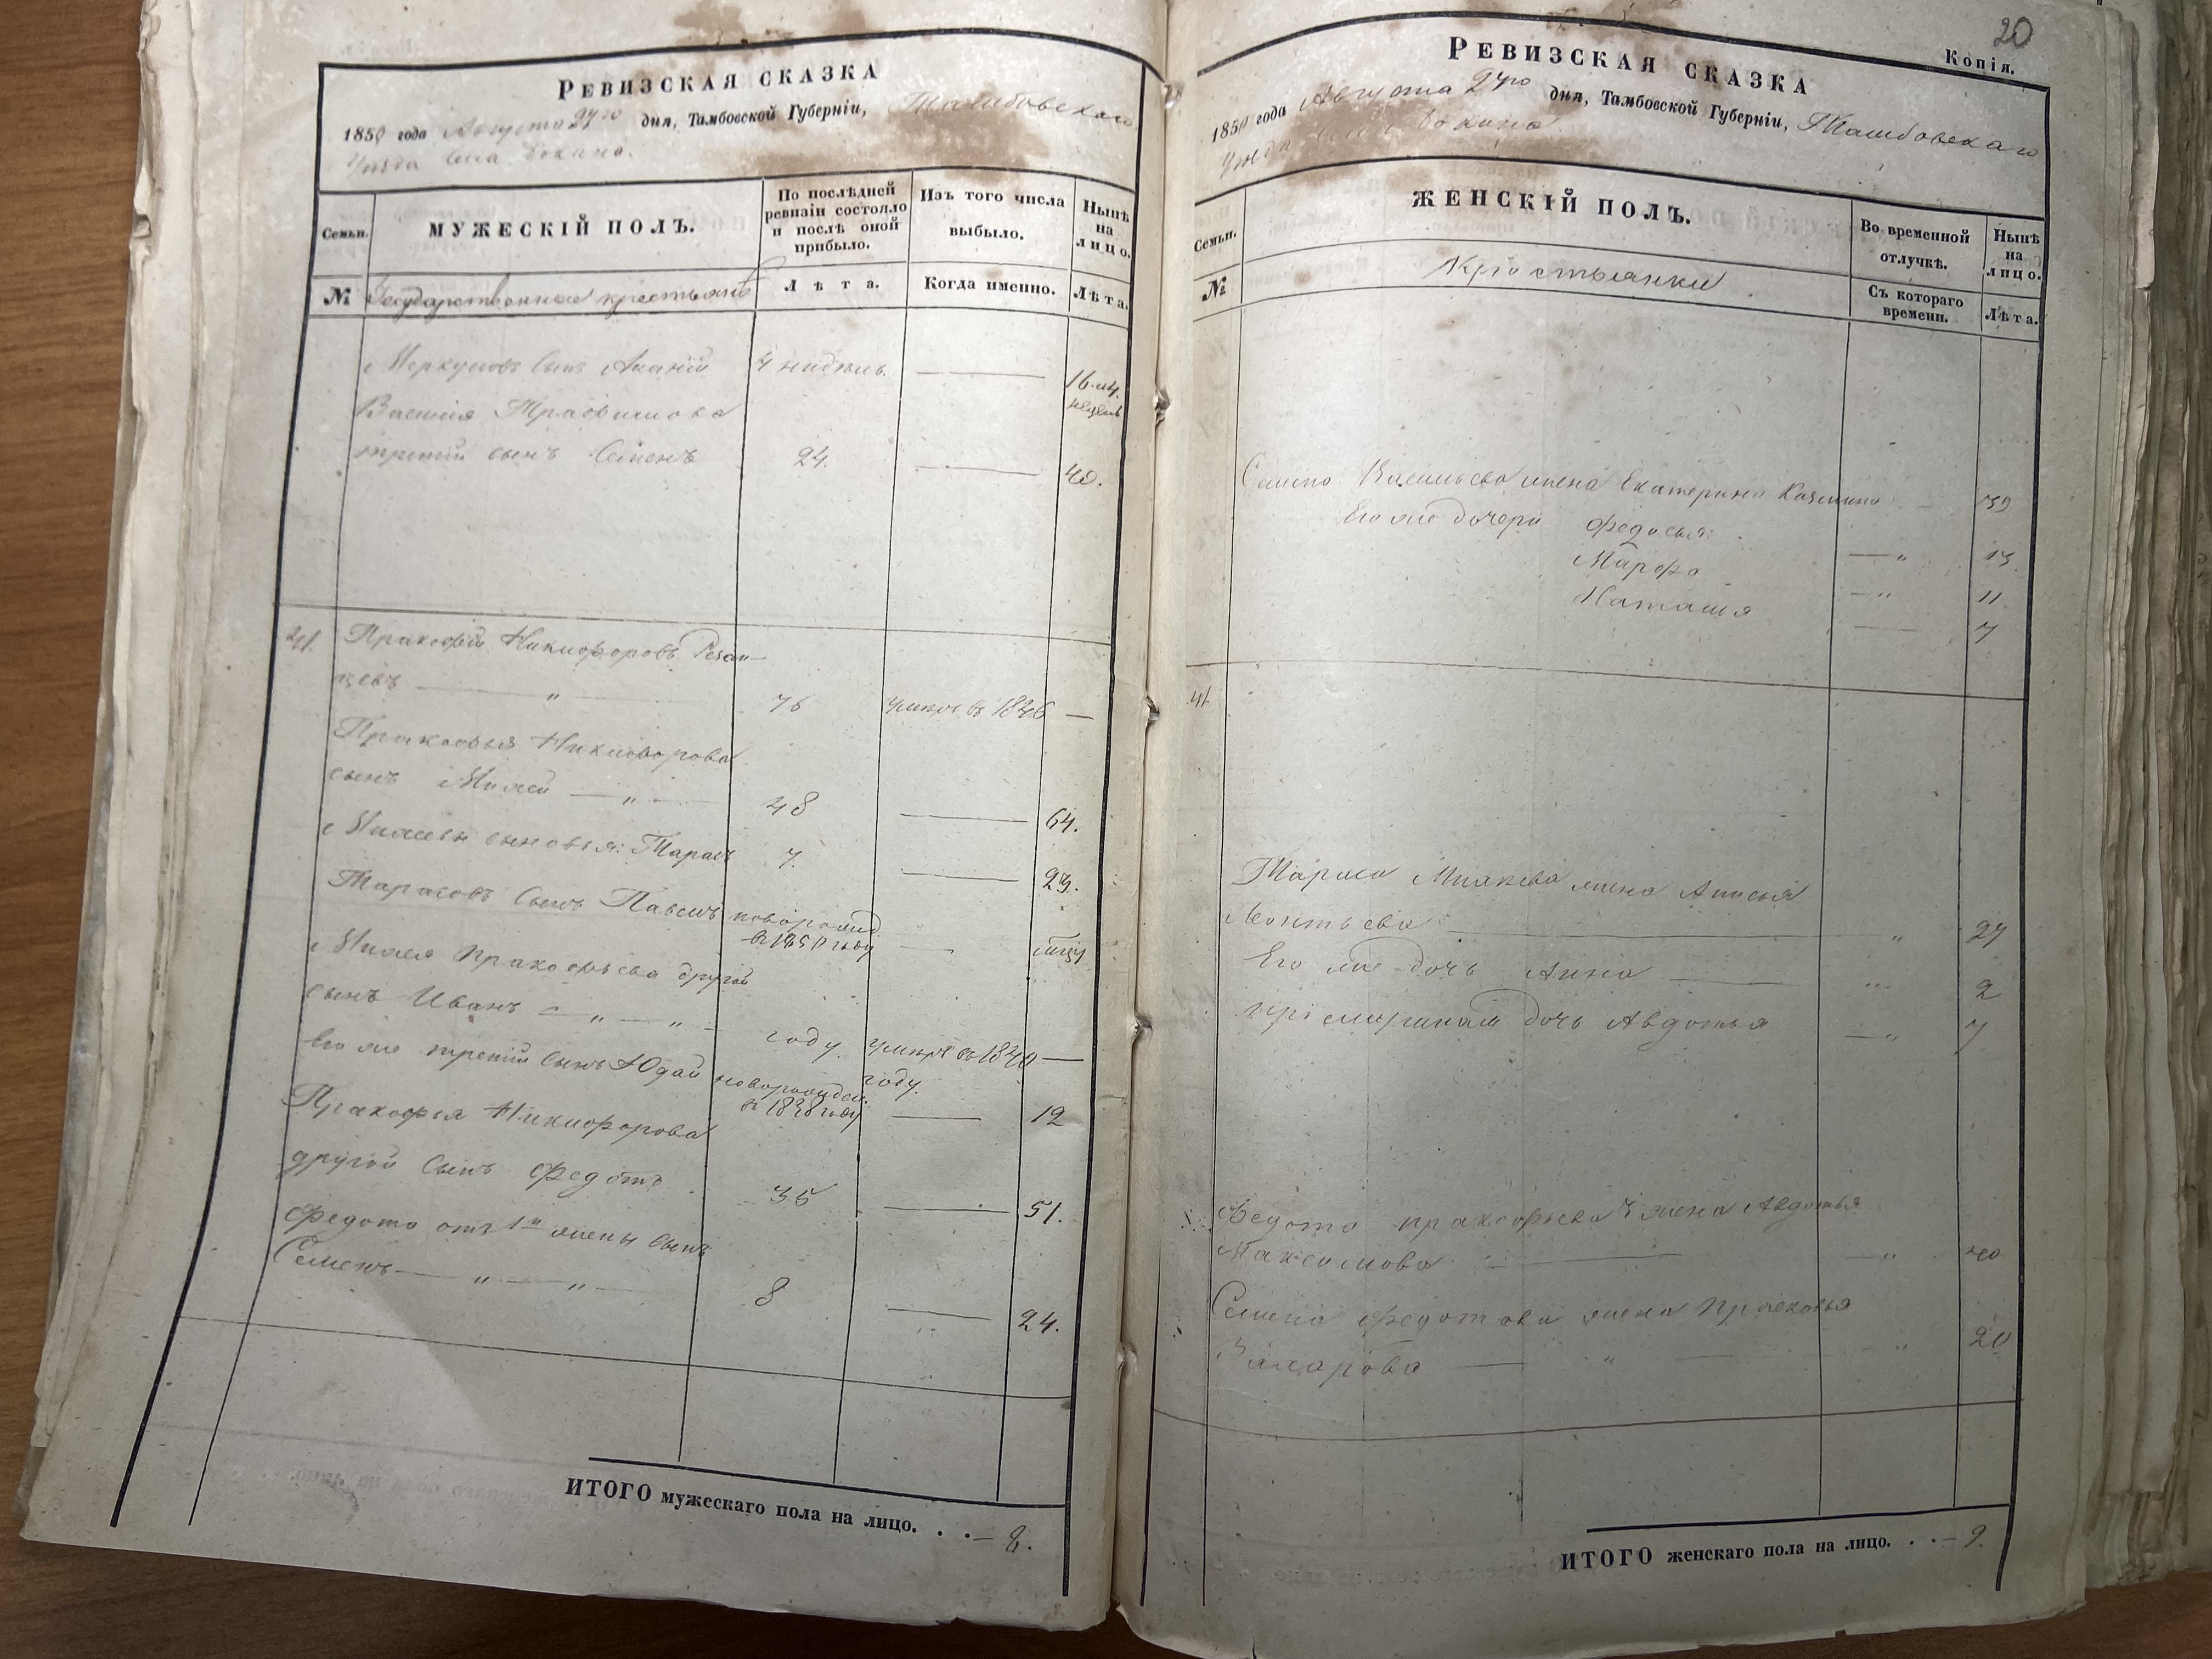 РЕВИЗСКАЯ СКАЗКА
1850 года Августа 27го дня, Тамбовской Губерніи, Тамбовскаго
Уѣзда Села
Семьи.
МУЖЕСКІЙ ПОЛЪ.
По послѣдней ревизіи состояло и послѣ оной прибыло.
Изъ того числа выбыло.
Нынѣ на лицо.
№
Государственные крестьяне
Лѣта.
Когда именно.
Лѣта.
Меркуловъ сынъ Ананій 4 недѣль — 16 и 4 недель
Василія Трафимова
третій сынъ Семенъ 24. — 40.
41 Пракофій Никифоровъ Резан-
цевъ — " — 76 умеръ въ 1846 —
Пракофья Никифорова
сынъ Михей — " — 48 — 64.
Михеевы сыновья: Тарасъ 7. — 23.
Тарасовъ сынъ Павелъ новорожд.
въ 1850 году —
Михея Пракофьева другой
сынъ Иванъ — " — " — году. умеръ въ 1840 —
году.
Его же третій сынъ Юдай новорожден.
въ 1838 году — 12
Пракофья Никифорова
другой сынъ Федотъ 35 — 51.
Федота отъ 1й жены сынъ
Семенъ — " — " — 8 — 24.
ИТОГО мужескаго пола на лицо. . . — 8.
20
Копія.
РЕВИЗСКАЯ СКАЗКА
1850 года Августа 27го дня, Тамбовской Губерніи, Тамбовскаго
Уѣзда
Семьи.
ЖЕНСКІЙ ПОЛЪ.
Во временной отлучкѣ.
Нынѣ на лицо.
№
Крестьянки.
Съ котораго времени.
Лѣта.
Семена Васильева жена Екатерина Казмина 39
Его же дочери Федосья — " 13
Марфа — " 11
Наталья — 7
41.
Тараса Михеева жена Аксинья
Леонтьева — " 27
Его же дочь Анна — " 2
дочь Авдотья — " 7
Федота Пракофьева жена Авдотья
Максимова — " 40
Семена Федотова жена Прасковья
Захарова — " — " 20
ИТОГО женскаго пола на лицо. . . — 9.